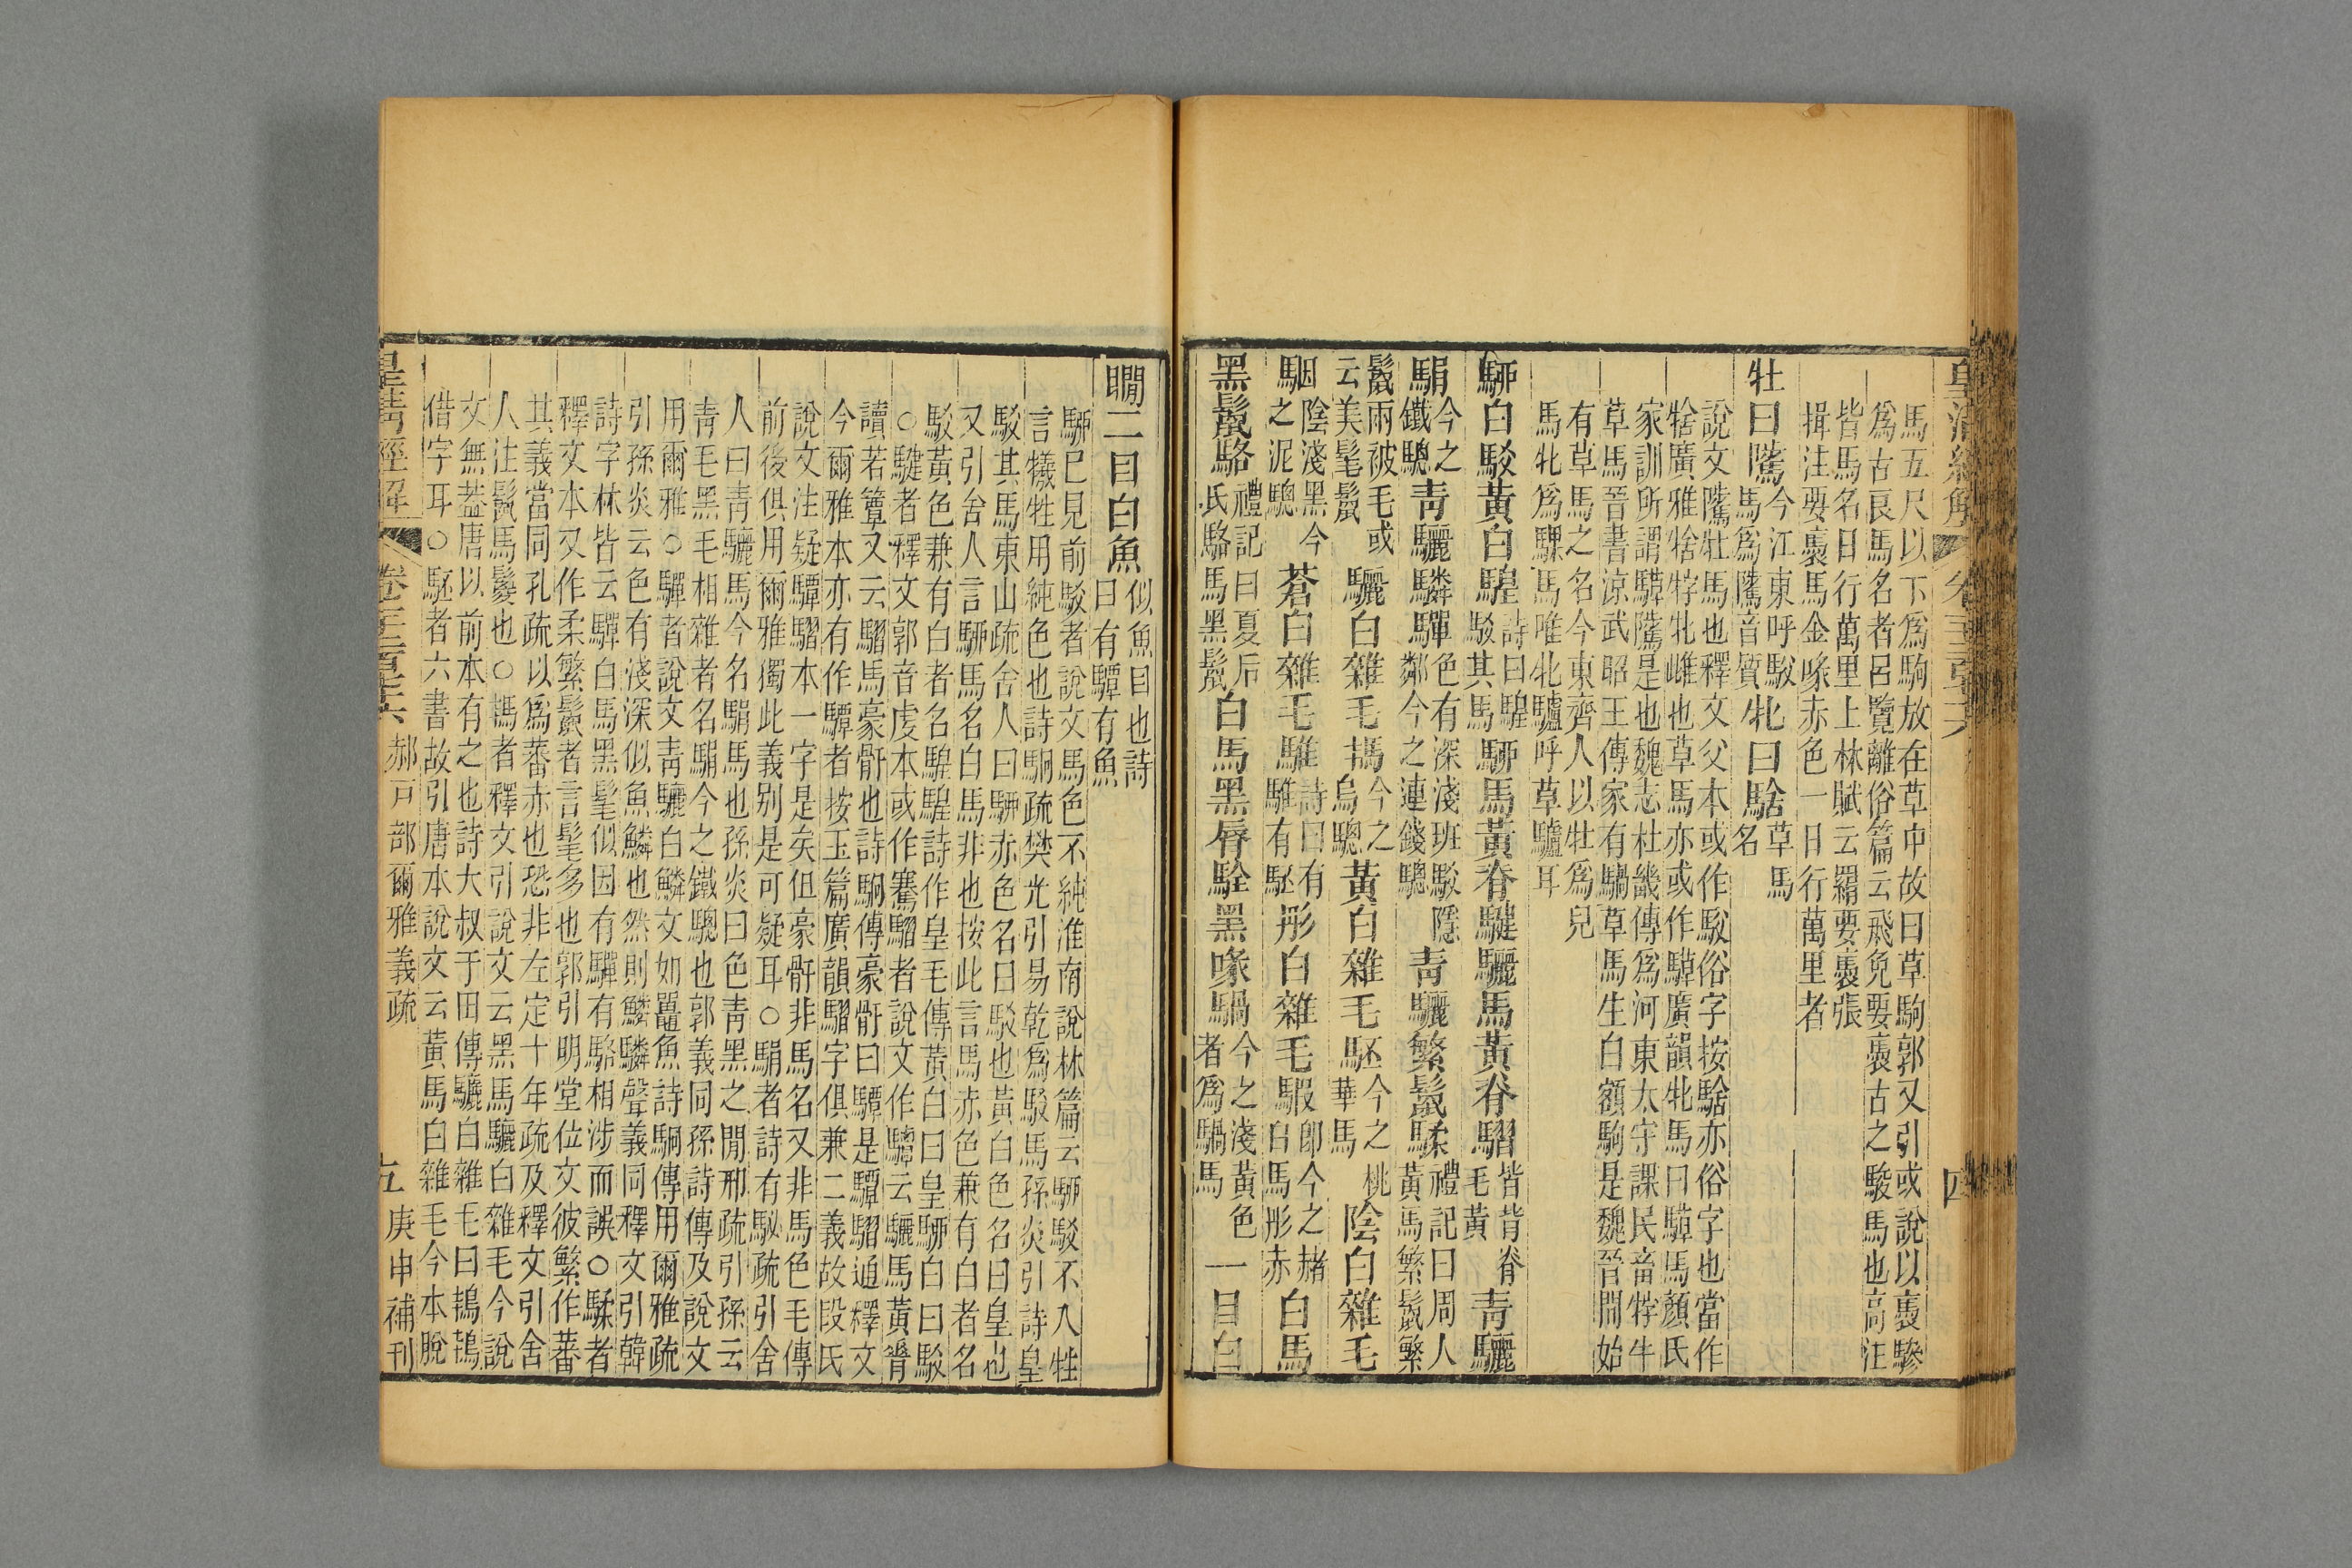 馬五尺以下爲駒放在草中故曰草駒郭又引或說以褭驂
爲古良馬名者呂覽離俗篇云飛兔要褭古之駿馬也高注
皆馬名日行萬里上林賦云羂要褭張
揖注要褭馬金喙赤色一日行萬里者
牡曰騭今江東呼駁馬爲騭音質牝曰騇草馬名
說文騭牡馬也釋文父本或作駁俗字按騇亦俗字也當作
㹑廣雅㹑牸牝雌也草馬亦或作騲廣韻牝馬曰騲馬顏氏
家訓所謂騲騭是也魏志杜畿傳爲河東太守課民畜牸牛
草馬晉書涼武昭王傳家有騧草馬生白額駒是魏晉間始
有草馬之名今東齊人以牡爲兒
馬牝爲騍馬唯牝驢呼草驢耳
駵白駁黃白騜詩曰騜駁其馬駵馬黃脊騝驪馬黃脊騽皆背脊毛黃靑驪
駽今之鐵驄靑驪驎驒色有深淺班駁隱鄰今之連錢驄靑驪繁鬣騥禮記曰周人黃馬繁鬣繁
鬣兩被毛或云美髦鬣驪白雜毛駂今之烏驄黃白雜毛駓今之桃華馬陰白雜毛
駰陰淺黑今之泥驄蒼白雜毛騅詩曰有騅有駓彤白雜毛騢卽今之赭白馬彤赤白馬
黑鬣駱禮記曰夏后氏駱馬黑鬣白馬黑脣駩黑喙騧今之淺黃色者爲騧馬一目白
瞷二目白魚似魚目也詩曰有驔有魚
駵已見前駁者說文馬色不純淮南說林篇云駵駁不入牲
言犧牲用純色也詩駉疏樊光引易乾爲駁馬孫炎引詩皇
駁其馬東山疏舍人曰駵赤色名曰駁也黃白色名曰皇也
又引舍人言駵馬名白馬非也按此言馬赤色兼有白者名
駁黃色兼有白者名騜騜詩作皇毛傳黃白曰皇駵白曰駁
○騝者釋文郭音虔本或作騫騽者說文作驔云驪馬黃脊
讀若簟又云騽馬豪骭也詩駉傳豪骭曰驔是驔騽通釋文
今爾雅本亦有作驔者按玉篇廣韻騽字俱兼二義故段氏
說文注疑驔騽本一字是矣但豪骭非馬名又非馬色毛傳
前後俱用爾雅獨此義別是可疑耳○駽者詩有駜疏引舍
人曰靑驪馬今名駽馬也孫炎曰色靑黑之閒邢疏引孫云
靑毛黑毛相雜者名駽今之鐵驄也郭義同孫詩傳及說文
用爾雅○驒者說文靑驪白鱗文如鼉魚詩駉傳用爾雅疏
引孫炎云色有淺深似魚鱗也然則鱗驎聲義同釋文引韓
詩字林皆云驒白馬黑髦似因有驒有駱相涉而誤○騥者
釋文本又作柔繁鬣者言髦多也郭引明堂位文彼繁作蕃
其義當同孔疏以爲蕃赤也恐非左定十年疏及釋文引舍
人注鬣馬鬉也○駂者釋文引說文云黑馬驪白雜毛今說
文無葢唐以前本有之也詩大叔于田傳驪白雜毛曰鴇鴇
借字耳○駓者六書故引唐本說文云黃馬白雜毛今本脫
皇淸經解 卷 六 郝戸部爾雅義疏 五 庚申補刊